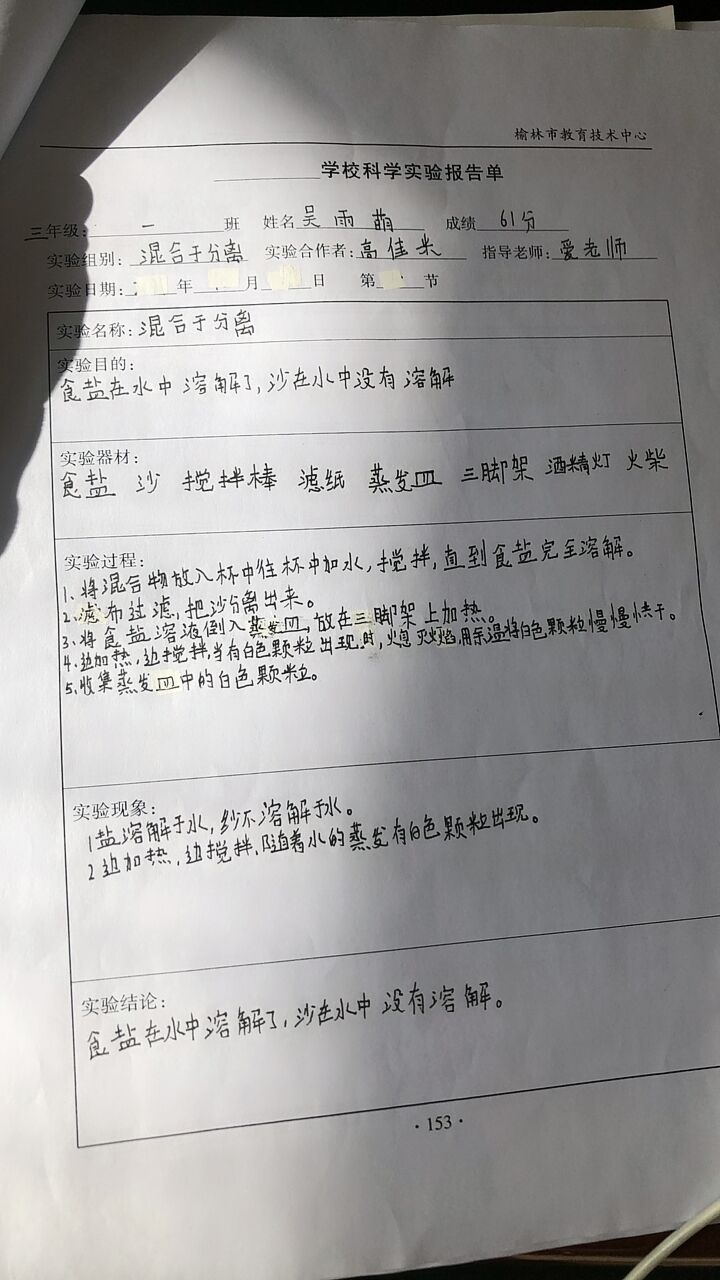 榆林市教育技术中心
学校科学实验报告单
三年级: 一 班 姓名 吴雨萌 成绩 61分
实验组别: 混合于分离 实验合作者: 高佳米 指导老师: 爱老师
实验日期: 年 月 日 第 节
实验名称: 混合于分离
实验目的:
食盐在水中溶解了,沙在水中没有溶解
实验器材:
食盐 沙 搅拌棒 滤纸 蒸发皿 三脚架 酒精灯 火柴
实验过程:
1、将混合物放入杯中住杯中加水,搅拌,直到食盐完全溶解。
2、滤布过滤,把沙分离出来。
3、将食盐溶液倒入蒸发皿,放在三脚架上加热。
4、边加热,边搅拌,当有白色颗粒出现时,熄灭火焰,用余温将白色颗粒慢慢烘干。
5、收集蒸发皿中的白色颗粒。
实验现象:
1盐溶解于水,纱不溶解于水。
2边加热,边搅拌,随着水的蒸发有白色颗粒出现。
实验结论:
食盐在水中溶解了,沙在水中没有溶解。
·153·